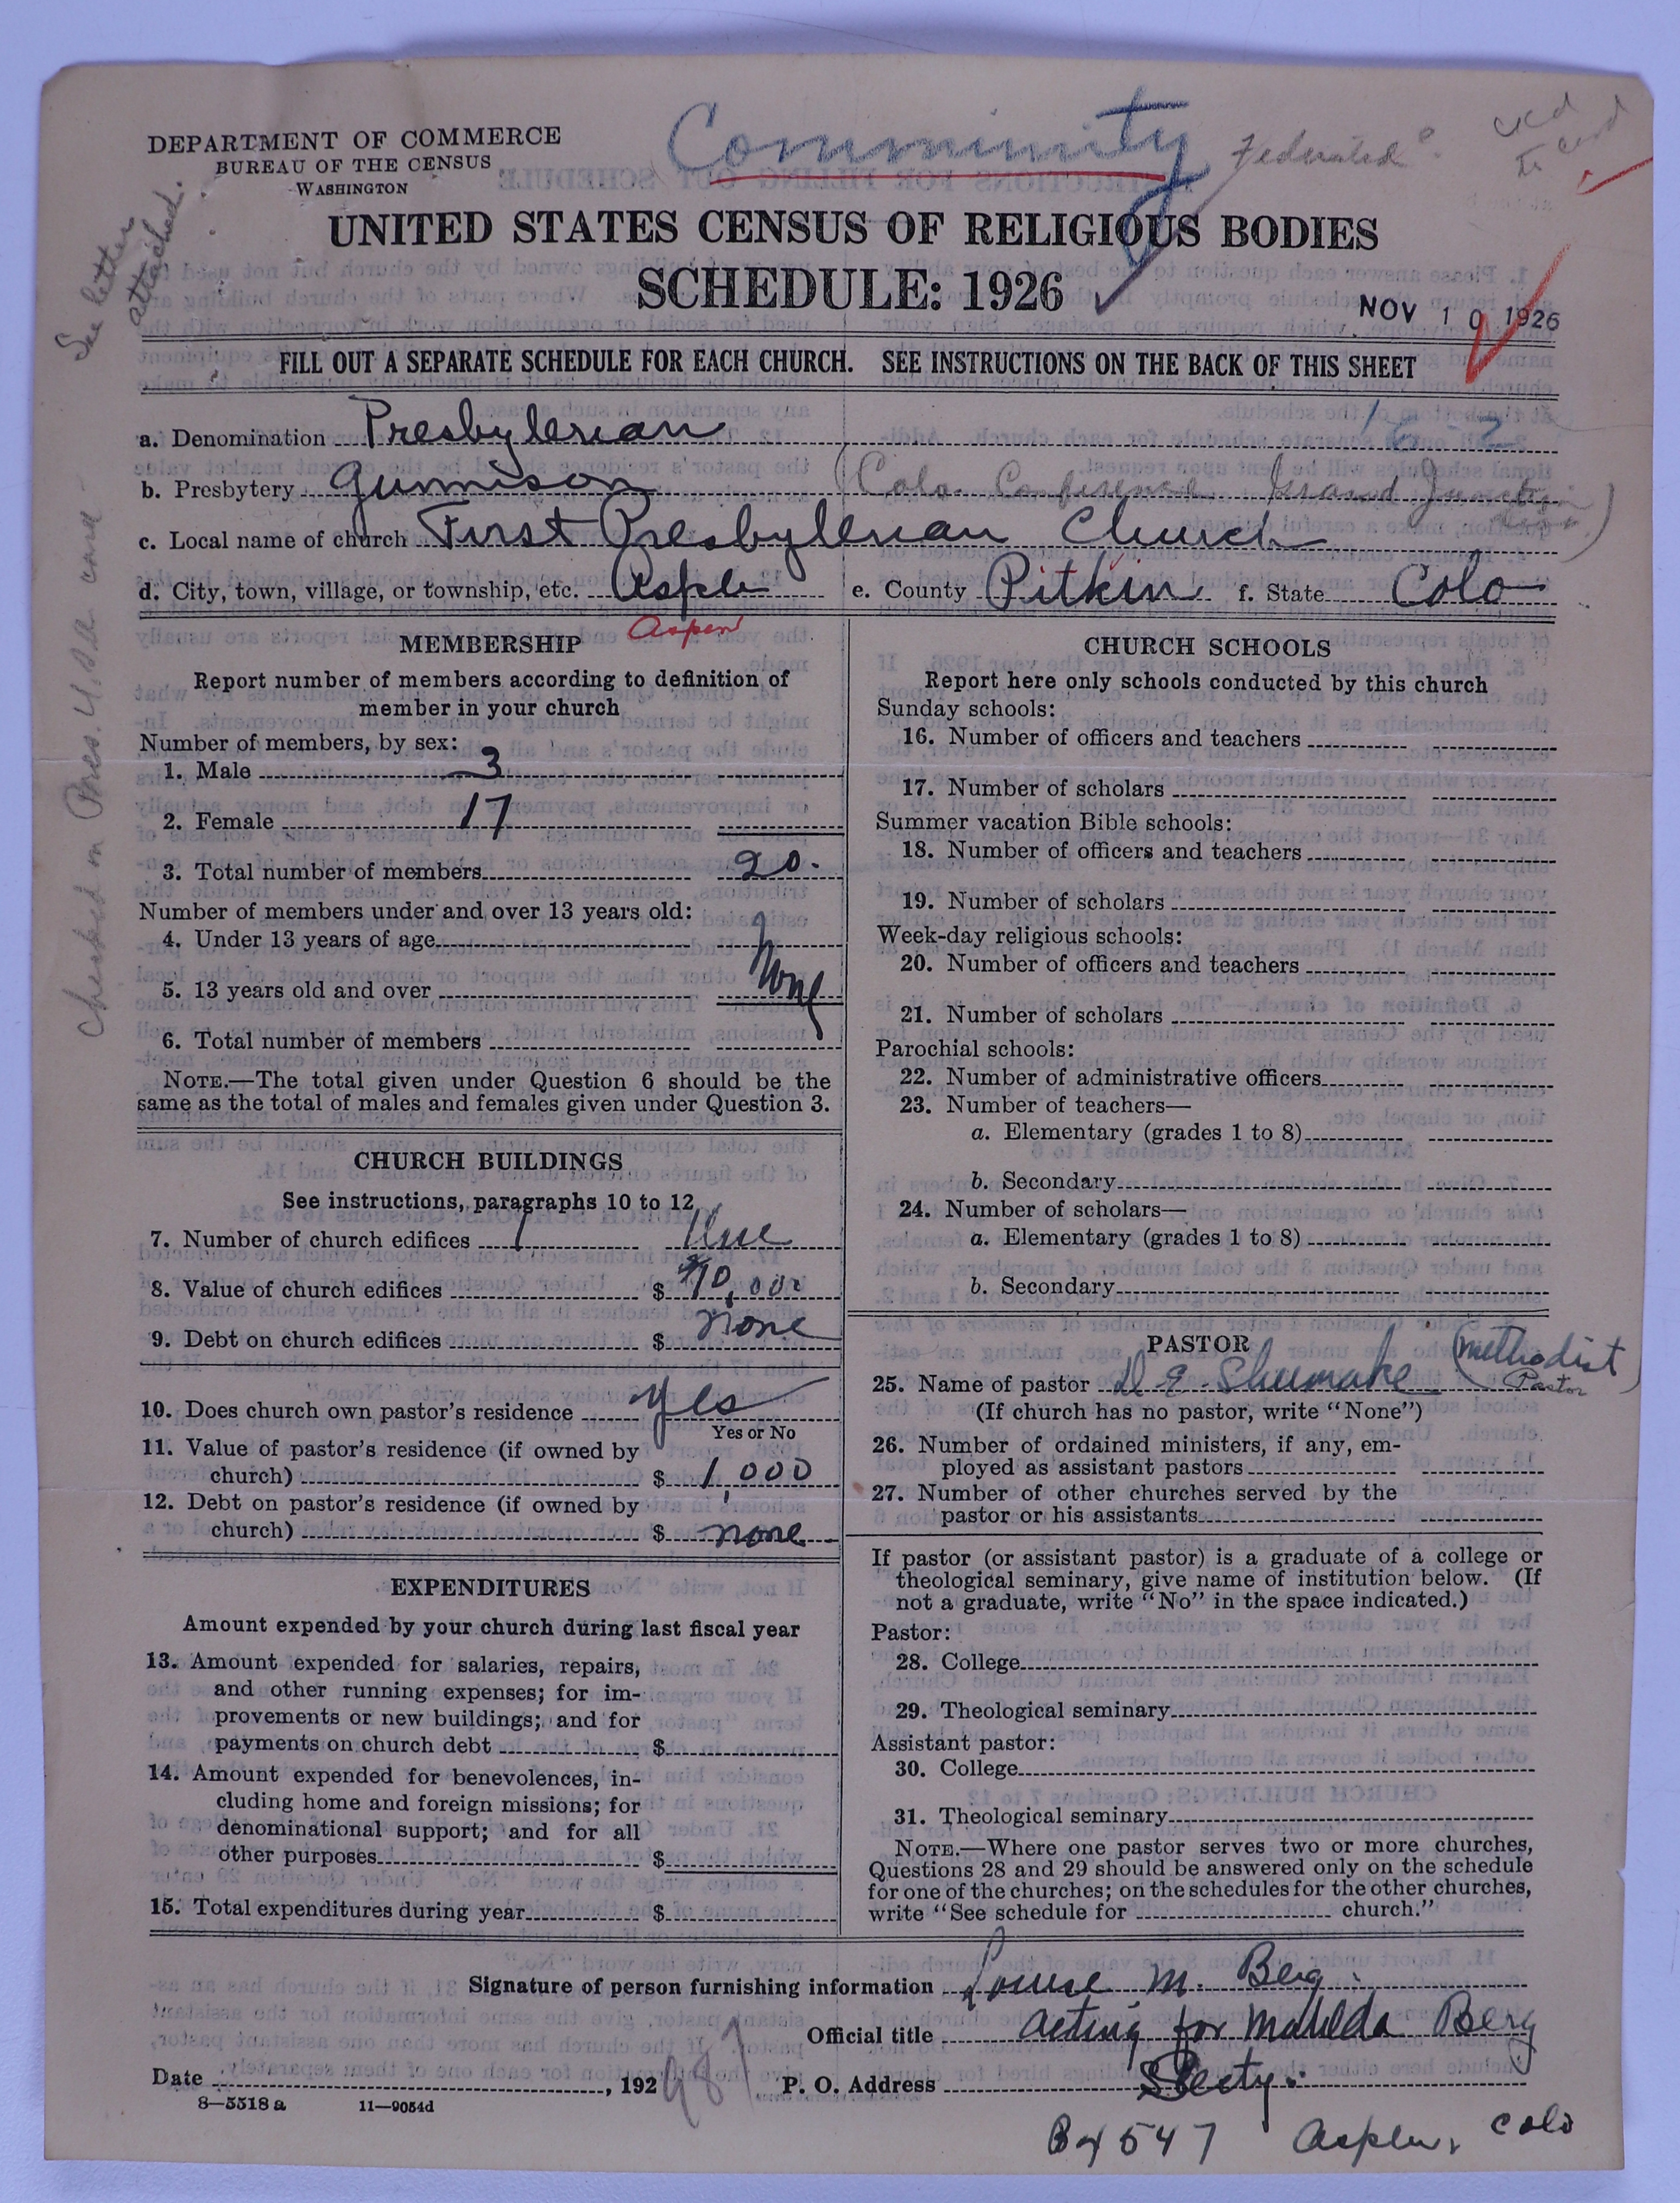 Community Federated?
DEPARTMENT OF COMMERCE
BUREAU OF THE CENSUS
WASHINGTON
See letter attached.
UNITED STATES CENSUS OF RELIGIOUS BODIES
SCHEDULE: 1926
NOV 10 1926
FILL OUT A SEPARATE SCHEDULE FOR EACH CHURCH. SEE INSTRUCTIONS ON THE BACK OF THIS SHEET
a. Denomination Presbyterian
b. Presbytery Gunnison (Colo. Conference Grand Junction
c. Local name of church First Presbyterian Church
d. City, town, village, or township, etc. Aspen e. County Pitkin f. State Colo
Aspen
Checked on Pres. U.S.A. card -
MEMBERSHIP
Report number of members according to definition of
member in your church
Number of members, by sex:
1. Male 3
2. Female 17
3. Total number of members 20.
Number of members under and over 13 years old:
4. Under 13 years of age
5. 13 years old and over None
6. Total number of members
NOTE.—The total given under Question 6 should be the
same as the total of males and females given under Question 3.
CHURCH BUILDINGS
See instructions, paragraphs 10 to 12
7. Number of church edifices 1
8. Value of church edifices $ 10,000
9. Debt on church edifices $ none
10. Does church own pastor's residence yes
Yes or No
11. Value of pastor's residence (if owned by
church) $ 1,000
12. Debt on pastor's residence (if owned by
church) $ none
EXPENDITURES
Amount expended by your church during last fiscal year
13. Amount expended for salaries, repairs,
and other running expenses; for im-
provements or new buildings; and for
payments on church debt $
14. Amount expended for benevolences, in-
cluding home and foreign missions; for
denominational support; and for all
other purposes $
15. Total expenditures during year $
CHURCH SCHOOLS
Report here only schools conducted by this church
Sunday schools:
16. Number of officers and teachers
17. Number of scholars
Summer vacation Bible schools:
18. Number of officers and teachers
19. Number of scholars
Week-day religious schools:
20. Number of officers and teachers
21. Number of scholars
Parochial schools:
22. Number of administrative officers
23. Number of teachers—
a. Elementary (grades 1 to 8)
b. Secondary
24. Number of scholars—
a. Elementary (grades 1 to 8)
b. Secondary
PASTOR
25. Name of pastor D E Shumake (Methodist Pastor
(If church has no pastor, write "None")
26. Number of ordained ministers, if any, em-
ployed as assistant pastors
27. Number of other churches served by the
pastor or his assistants
If pastor (or assistant pastor) is a graduate of a college or
theological seminary, give name of institution below. (If
not a graduate, write "No" in the space indicated.)
Pastor:
28. College
29. Theological seminary
Assistant pastor:
30. College
31. Theological seminary
NOTE.—Where one pastor serves two or more churches,
Questions 28 and 29 should be answered only on the schedule
for one of the churches; on the schedules for the other churches,
write "See schedule for church."
Signature of person furnishing information Louise M. Berg
Official title acting for Matilda Berg
Date , 192 P. O. Address Secty.
8—5518 a 11—9054d
Bx 547 Aspen, Colo